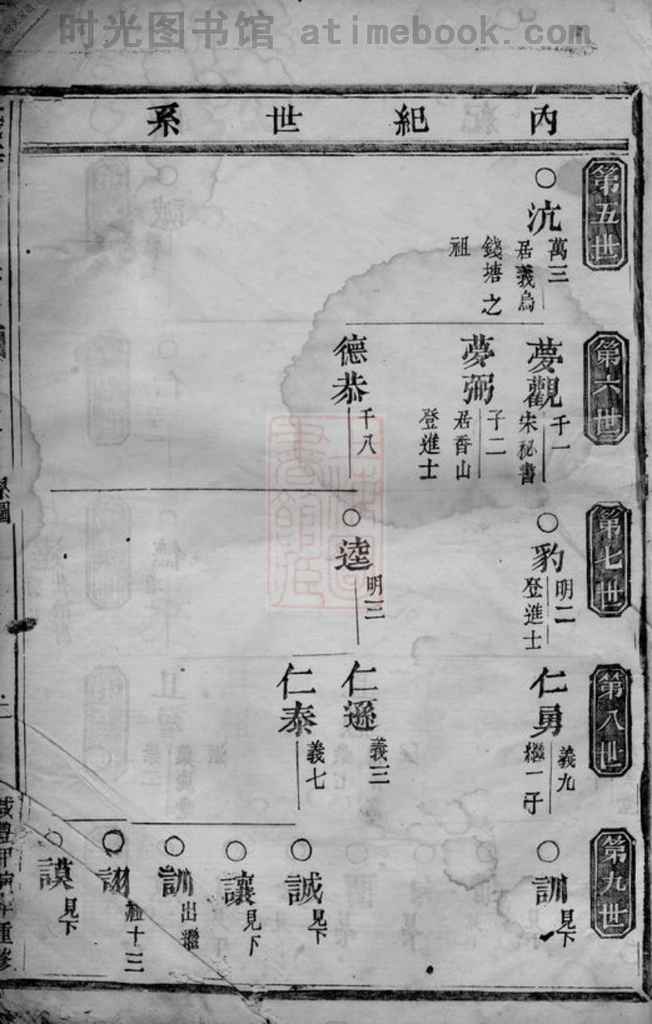 时光图书馆 atimebook.com
內紀世系
第五世
○沆
萬三
居義烏
錢塘之
祖
第六世
夢觀
千一
宋祕書
夢弼
子二
居香山
登進士
德恭
千八
第七世
○豹
明二
登進士
○逵
明三
第八世
仁勇
義九
繼一子
仁遜
義三
仁泰
義七
第九世
○訓
見下
○誠
見下
○讓
見下
○訓
出繼
○詡
經十三
○謨
見下
系圖
重修